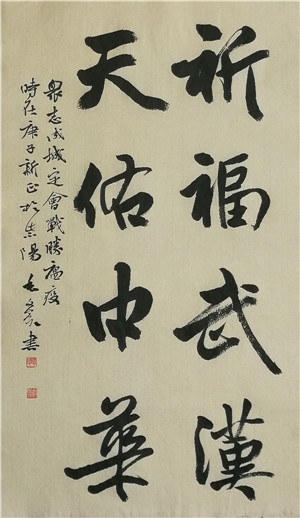 祈福武漢
天佑中華
眾志成城定會戰勝瘟疫
時在庚子新正於嵩陽 書